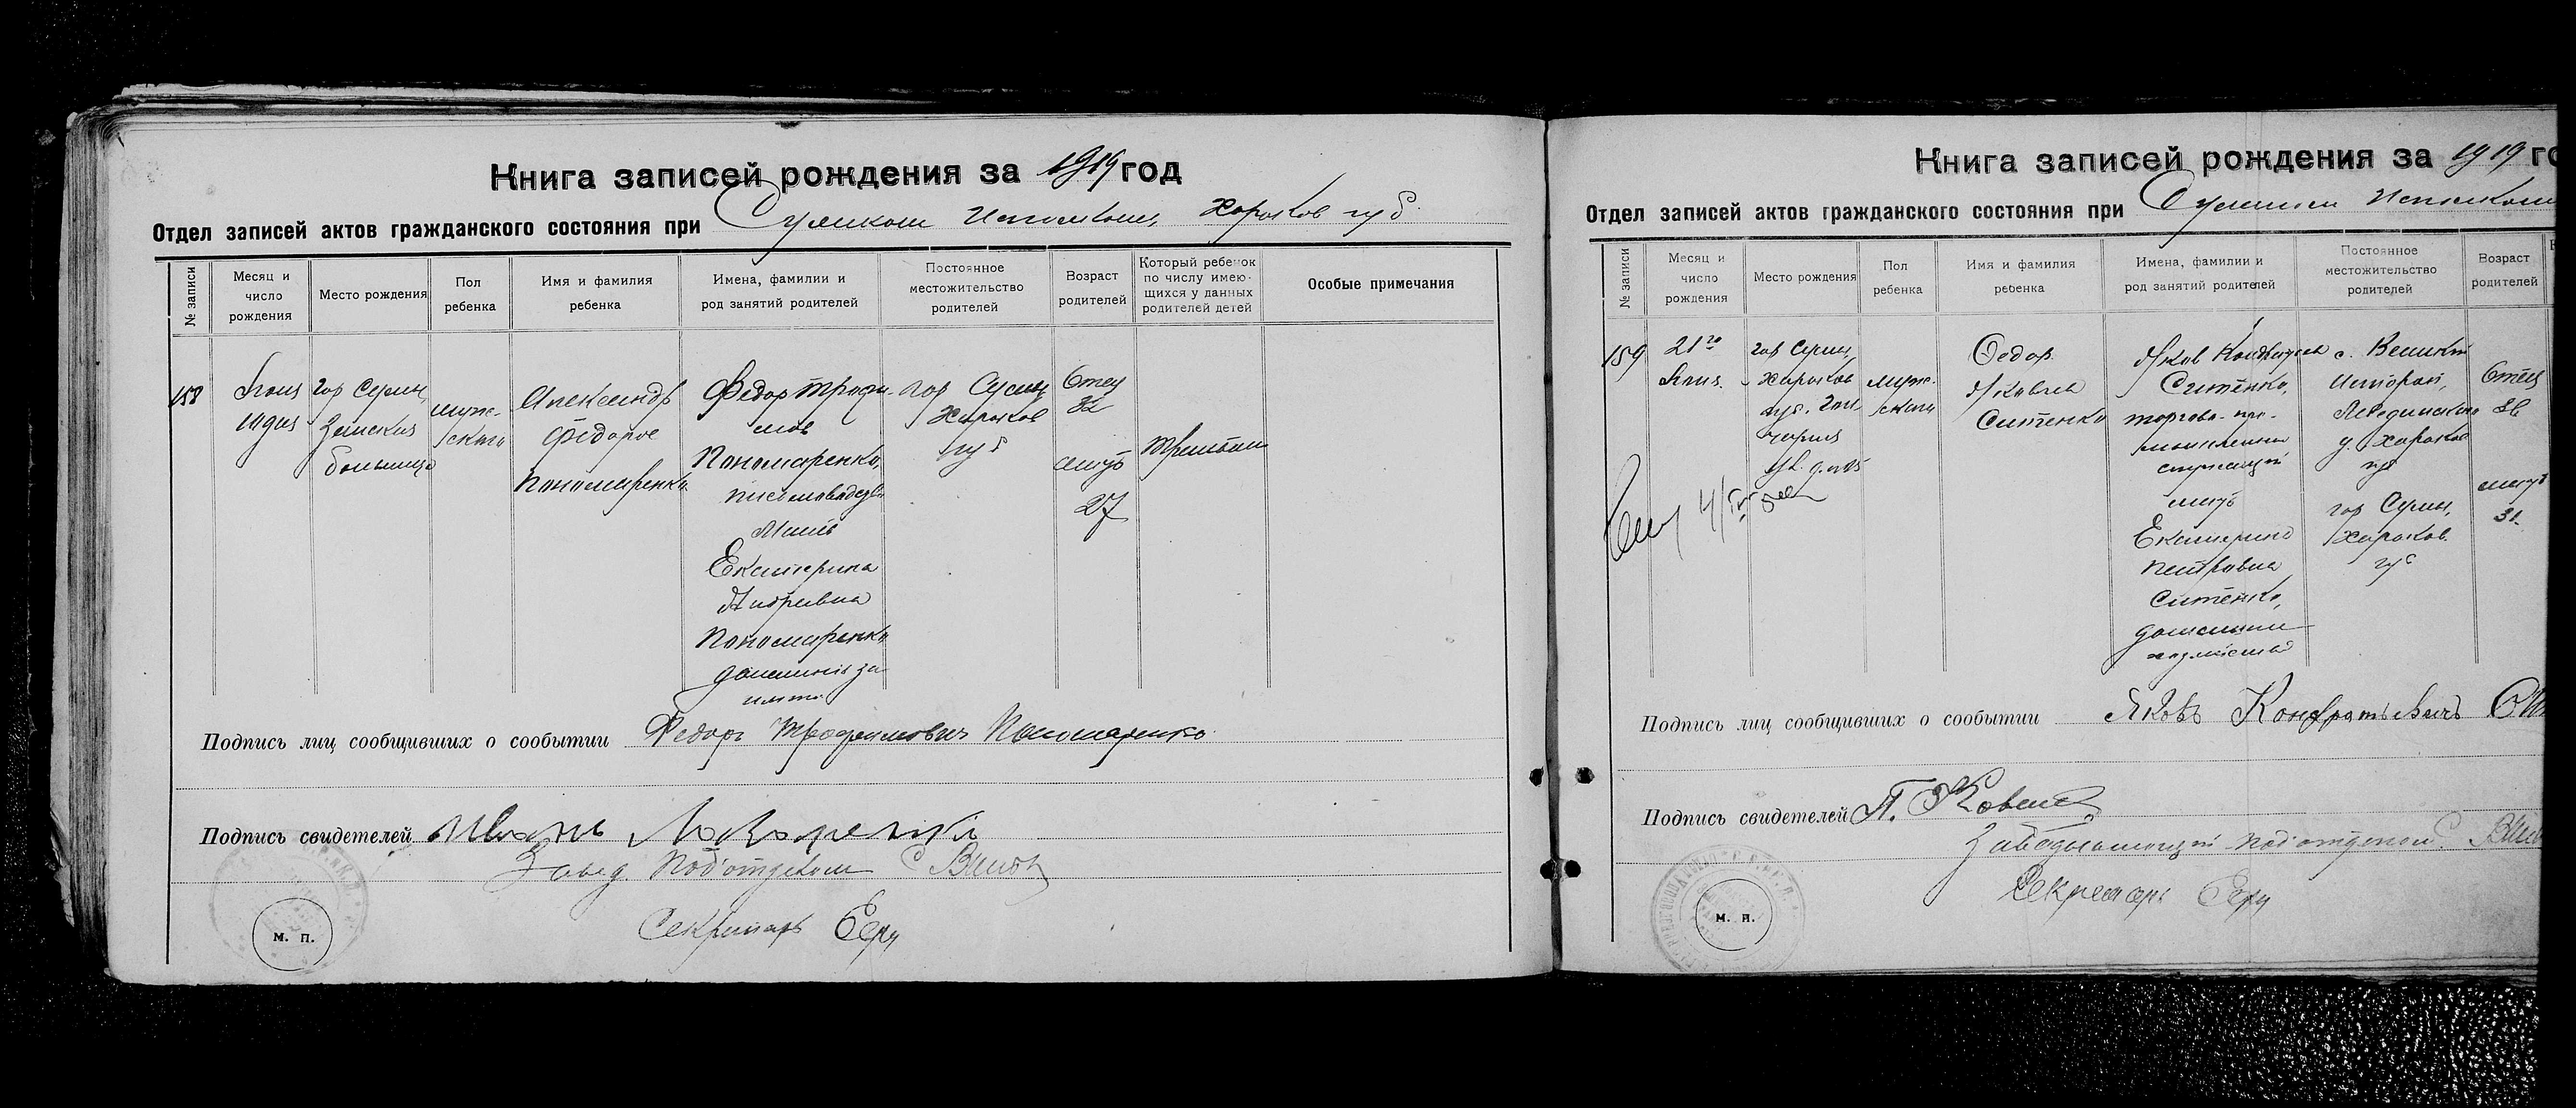 Книга записей рождения за 1919 год
Отдел записей актов гражданского состояния при Сумском Исполкоме, Харьков губ.
№ записи
Месяц и число рождения
Место рождения
Пол ребенка
Имя и фамилия ребенка
Имена, фамилии и род занятий родителей
Постоянное местожительство родителей
Возраст родителей
Который ребенок по числу имеющихся у данных родителей детей
Особые примечания
158
гор Сумы,
Земская
больница
муж-
ского
Александр
Федоров
Пономаренко
Федор Трофи-
мов
Пономаренко,
письмоводит
Мать
Екатерина
Андреевна
Пономаренко
домашн за
гор Сумы,
Харьков
губ
Отец
32
мать
27
Третий
Подпись лиц сообщивших о сообытии Федор Трофимович Пономаренко
Подпись свидетелей Иван
Завед. Под'отделом
Секретарь
м. п.
Книга записей рождения за 1919 го
Отдел записей актов гражданского состояния при Сумском Исполком
№ записи
Месяц и число рождения
Место рождения
Пол ребенка
Имя и фамилия ребенка
Имена, фамилии и род занятий родителей
Постоянное местожительство родителей
Возраст родителей
159
21го
гор Сумы,
Харьков
губ.
муж-
ского
Федор
Яковлев
Ситенко
Яков Кондратьев
Ситенко,
торгово-про-
мышленный
служащий
мать
Екатерина
Петровна
Ситенко,
домашнее
хозяйство
с. Великий
Истороп,
Лебединского
у. Харьков
губ
гор Сумы,
Харьков.
губ
Отец
38
мать
31.
Подпись лиц сообщивших о сообытии Яковъ Кондратьевичъ
Подпись свидетелей П.
Заведывающий под'отделом
Секретарь
м. п.